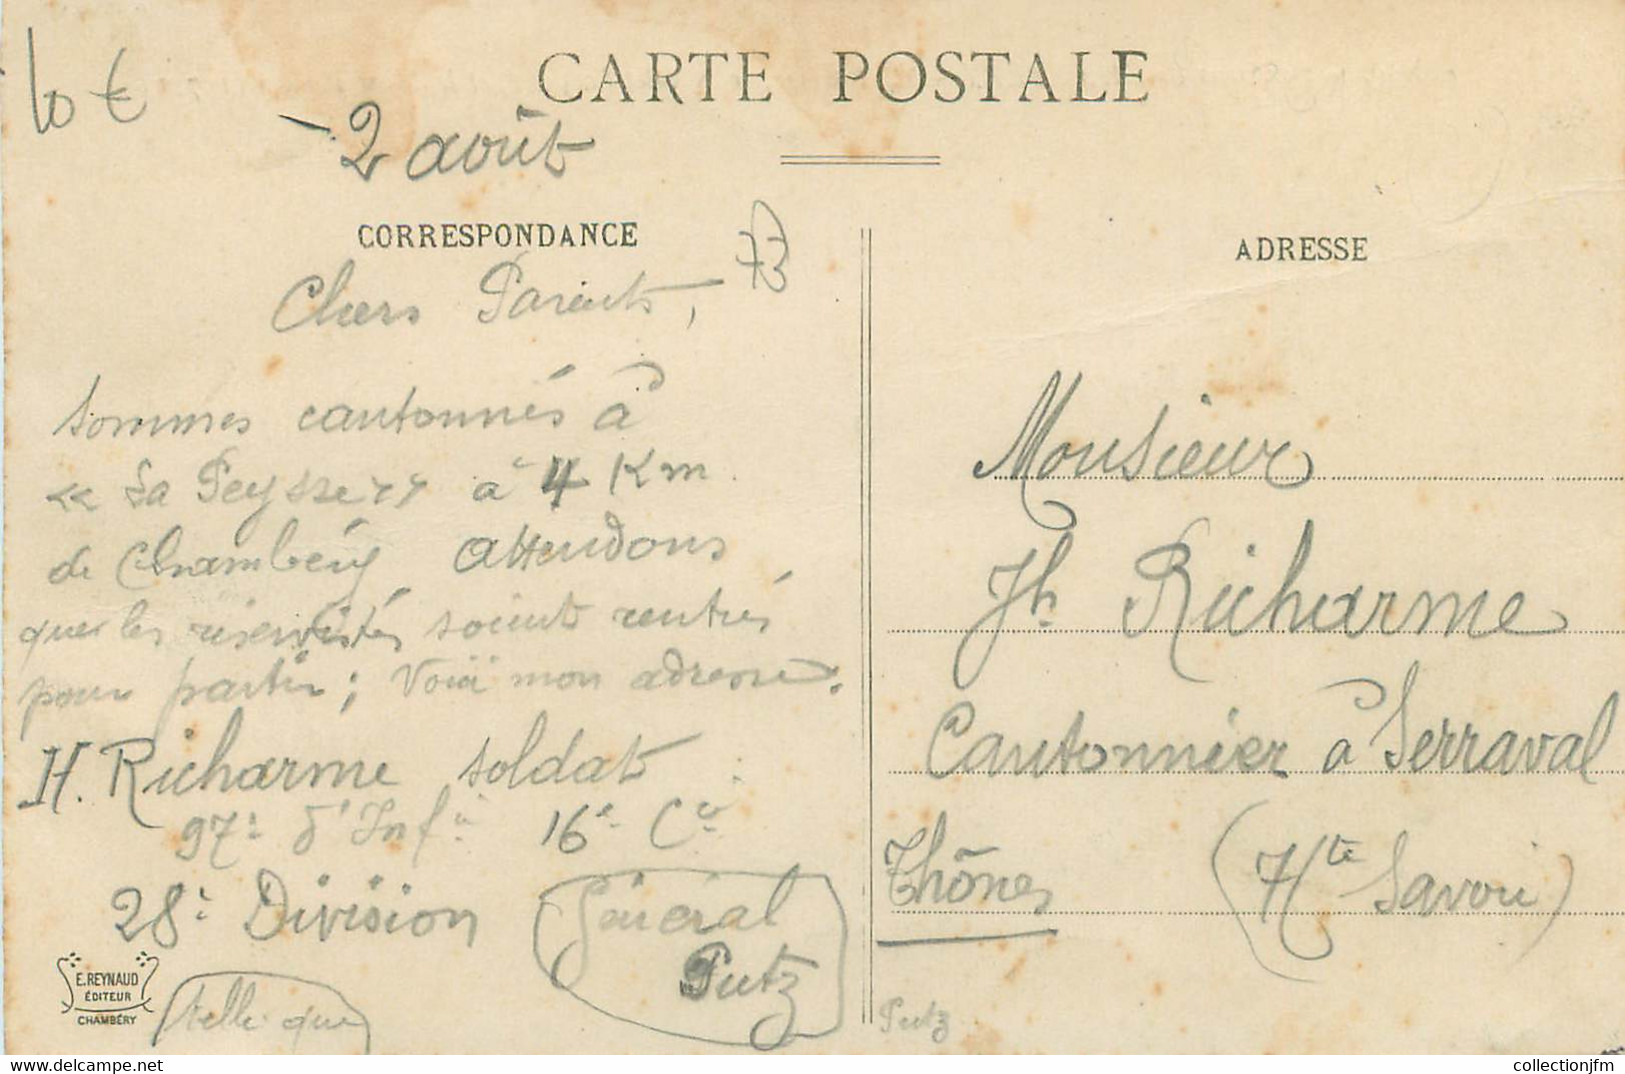 10 €
CARTE POSTALE
- 2 août
CORRESPONDANCE
73
Chers Parents,
sommes cantonnés à
« La Peysse » à 4 Km
de Chambéry attendons
que les réservistes soients rentrés
pour partir ; Voici mon adresse.
H. Richarme soldat
97e d'Infie 16e Cie
28e Division
Général
Putz
telle que
E. REYNAUD
ÉDITEUR
CHAMBÉRY
ADRESSE
Monsieur
Jh Richarme
Cantonnier à Serraval
Thônes (Hte Savoie)
Putz
collectionjfm